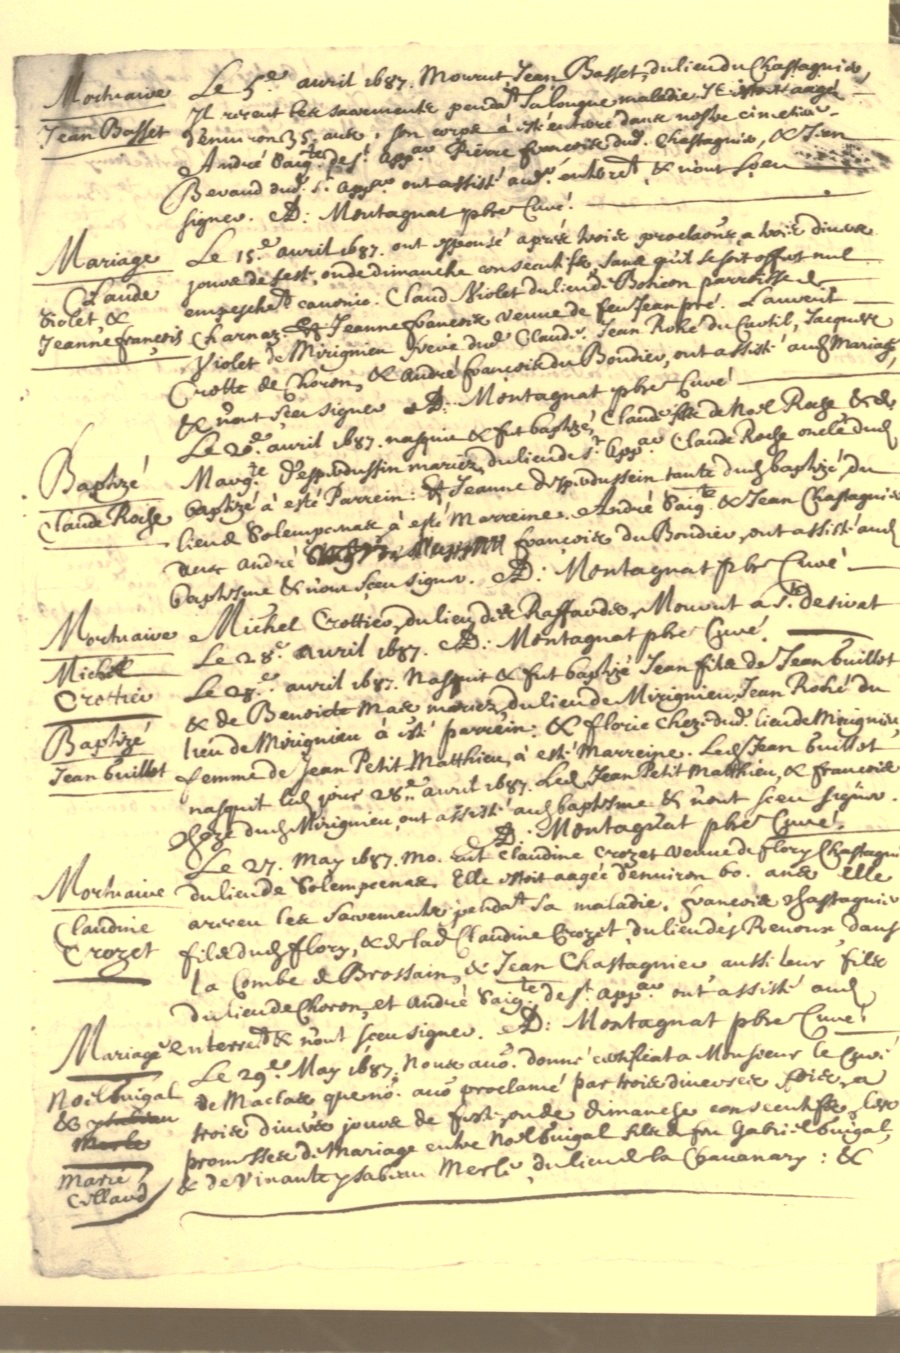 Mortuaire
Jean Basset
Le 5e. avril 1687. Mourut Jean Basset, du lieu du Chastagnier,
Il receut les sacrements pendat. Sa longue maladie. Il estoit aagé
d'environ 35. ans. Son corps à esté enterré dans nostre cimetiere.
André Saigte. de St. appar. Pierre françois dud. Chastagnier, & Jean
Bevaud dud. St. appar. ont assisté aud. enterrt. & n'ont sceu
signer. D: Montagnat pbre Curé.
Mariage
Claude
Violet, &
Jeanne françois
Le 15e. avril 1687. ont espousé aprés trois proclaons. a trois divers
jours de feste, ou de dimanche consecutifs, sans qu'il se soit offert nul
empeschet. canonic. Claud Violet du lieu de parroisse de
Charnas & Jeanne françois veuve de feu Jean pré. Laurent
Violet de Mirignieu frere dud. Claude. Jean Roché du Curtil, Jacques
Crotte de Choron, & André françois du Bondieu, ont assisté aud. Mariage,
& n'ont sceu signer D: Montagnat pbre Curé
Baptizé
Claude Roche
Le 20e. avril 1687. nasquit & fut baptizé, Claude fils de Noel Roche & de
Margte. d'espvdussin mariéz, du lieu de St. appar. Claude Roche oncle dud.
baptizé à esté Parrein: & Jeanne despvdussein tante dud. baptizé, du
lieu de Solempcenas à esté Marreine. André Saigte. & Jean Chastagnier
avec André françois du Bondieu, ont assisté aud.
baptesme & n'ont sceu signer. D: Montagnat pbre Curé
Mortuaire
Michel
Crottier
Michel Crottier, du lieu des Raffaudes, Mourut a St. desirat
Le 28e. avril 1687. D: Montagnat pbre Curé.
Baptizé
Jean buillot
Le 28e. avril 1687. Nasquit & fut baptizé Jean fils de Jean buillot
& de Benoicte Mas mariéz, du lieu de Mirignieu, Jean Roché du
lieu de Mirignieu à esté parrein: & florie Cheze dud. lieu de Mirignieu,
femme de Jean Petit Matthieu, à esté Marreine. Led. Jean buillot
nasquit led. jour 28e. avril 1687. Led. Jean Petit Matthieu, & françois
cheze dud. Mirignieu, ont assisté aud. baptesme & n'ont sceu signer.
D: Montagnat pbre Curé.
Mortuaire
Claudine
Crozet
Le 27. May 1687. Mo. rut Claudine Crozet veuve de flory Chastagnier
du lieu de Solempcenas. Elle estoit aagée d'environ 60. ans elle
a receu les sacrements pendat. sa maladie. françois chastagnier
fils dud. flory, & de lad. Claudine Crozet, du lieu des Renoux, dans
la Combe de Brossain, & Jean Chastagnier aussi leur fils
du lieu de Choron, et André Saigte. de St. appar. ont assisté aud.
enterret. & n'ont sceu signer. D: Montagnat pbre Curé.
Mariage
Noel buigal
& ysabeau
Merle
Marie
Collaud
Le 29e. May 1687. Nous avo. donné certificat a Monsieur le Curé
de Maclas que no. avo. proclamé par trois diverses fois, a
trois divers jours de feste, ou de dimanche consecutifs, les
promesses de Mariage entre Noel buigal fils de feu Gabriel buigal,
& de vivante ysabeau Merle, du lieu de la Chavanary: &